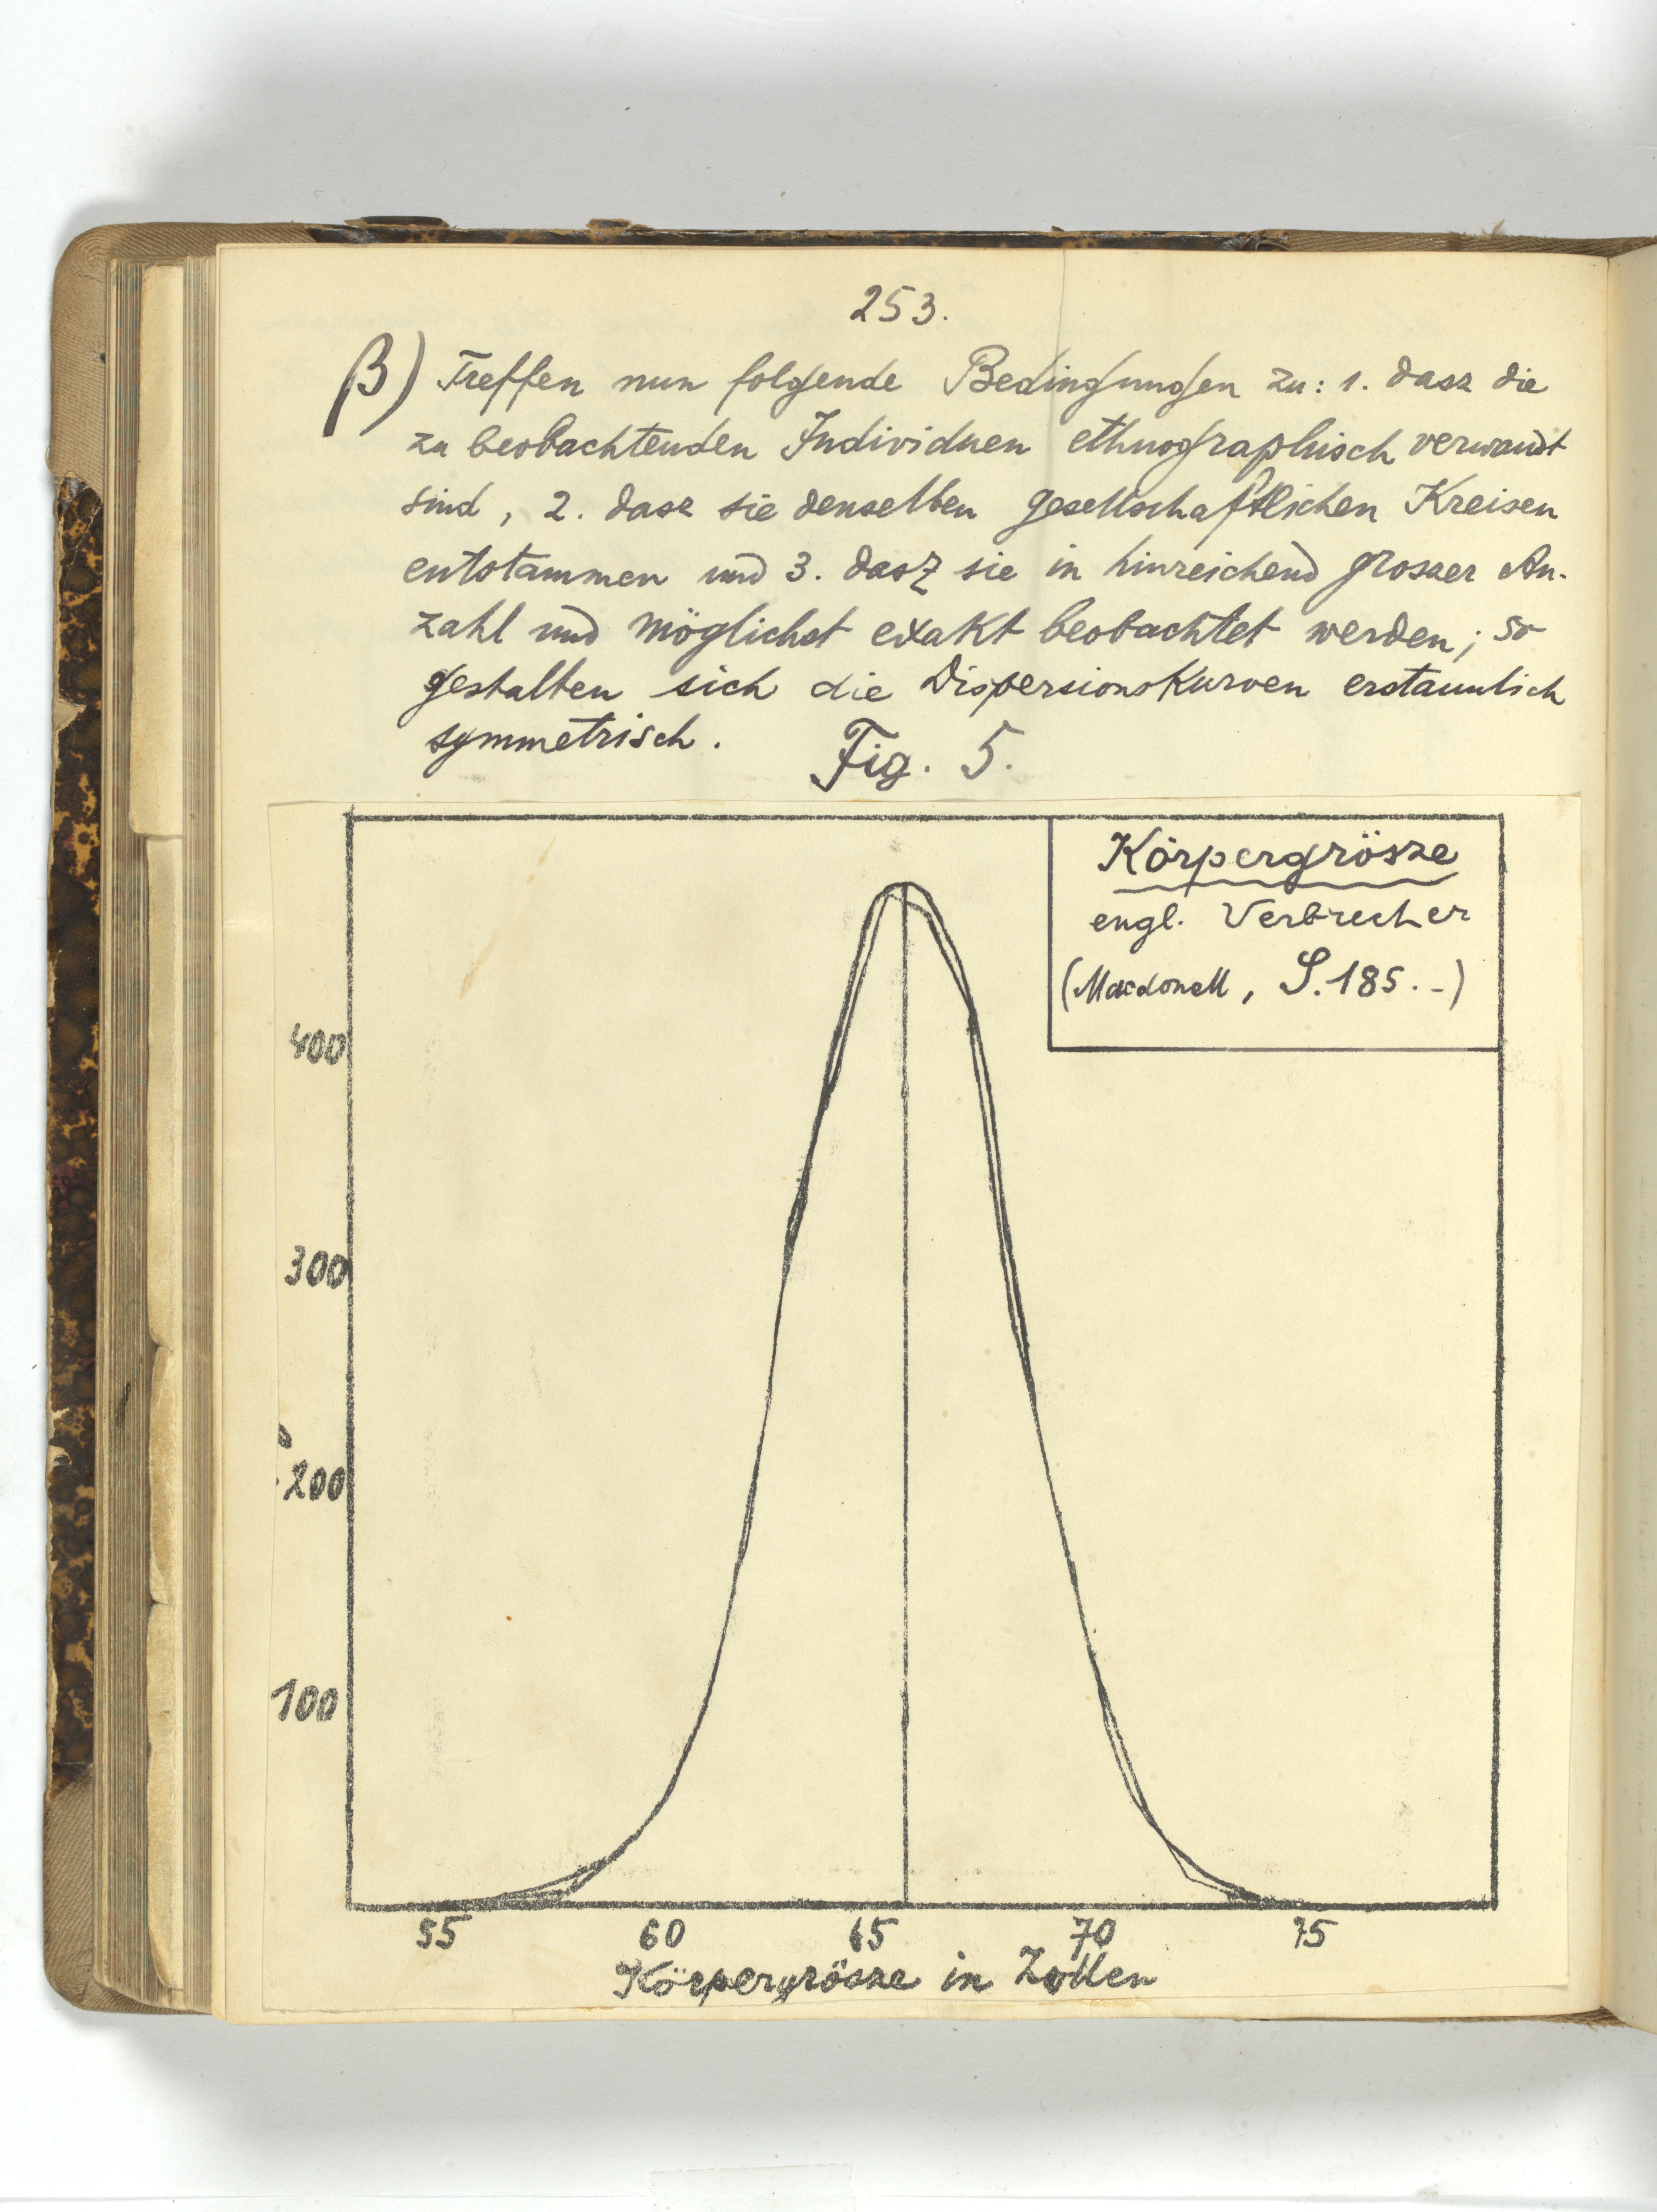 253.
β) Treffen nun folgende Bedingungen zu: 1. dasz die
zu beobachtenden Individuen ethnographisch verwandt
sind, 2. dasz sie denselben gesellschaftlichen Kreisen
entstammen und 3. dasz sie in hinreichend grosser An-
zahl und möglichst exakt beobachtet werden; so
gestalten sich die Dispersionskurven erstaunlich
symmetrisch.
Fig. 5.
Körpergrösze
engl. Verbrecher
(Macdonell, S. 185.-)
400
300
200
100
55 60 65 70 75
Körpergrösze in Zollen